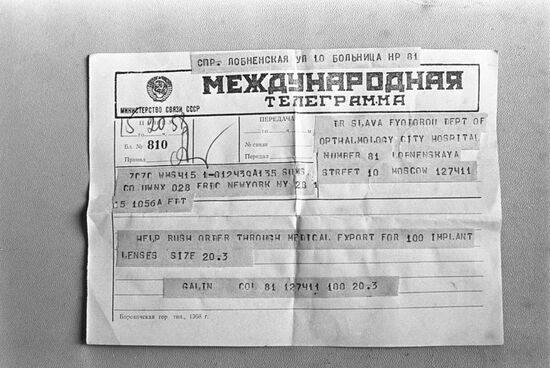 СПР. ЛОБНЕНСКАЯ УЛ 10 БОЛЬНИЦА НР 81
МЕЖДУНАРОДНАЯ
ТЕЛЕГРАММА
МИНИСТЕРСТВО СВЯЗИ СССР
15 20 58
Бл. № 810
Принял
ПЕРЕДАЧА
го ч. м.
№ связи
Передал
DR SLAVA FYODOROU DEPT OF
OPTHALMOLOGY CITY HOSPITAL
NUMBER 81 LOBNENSKAYA
STREET 10 MOSCOW 127411
7C7C WMS415 1-012430A135
CO UWNY 028 ERIC NEWYORK NY 28 1
15 1056A EDT
HELP RUSH ORDER THROUGH MEDICAL EXPORT FOR 100 IMPLANT
LENSES SIZE 20.3
GALIN COL 81 127411 100 20.3
Боровичская гор. тип., 1968 г.